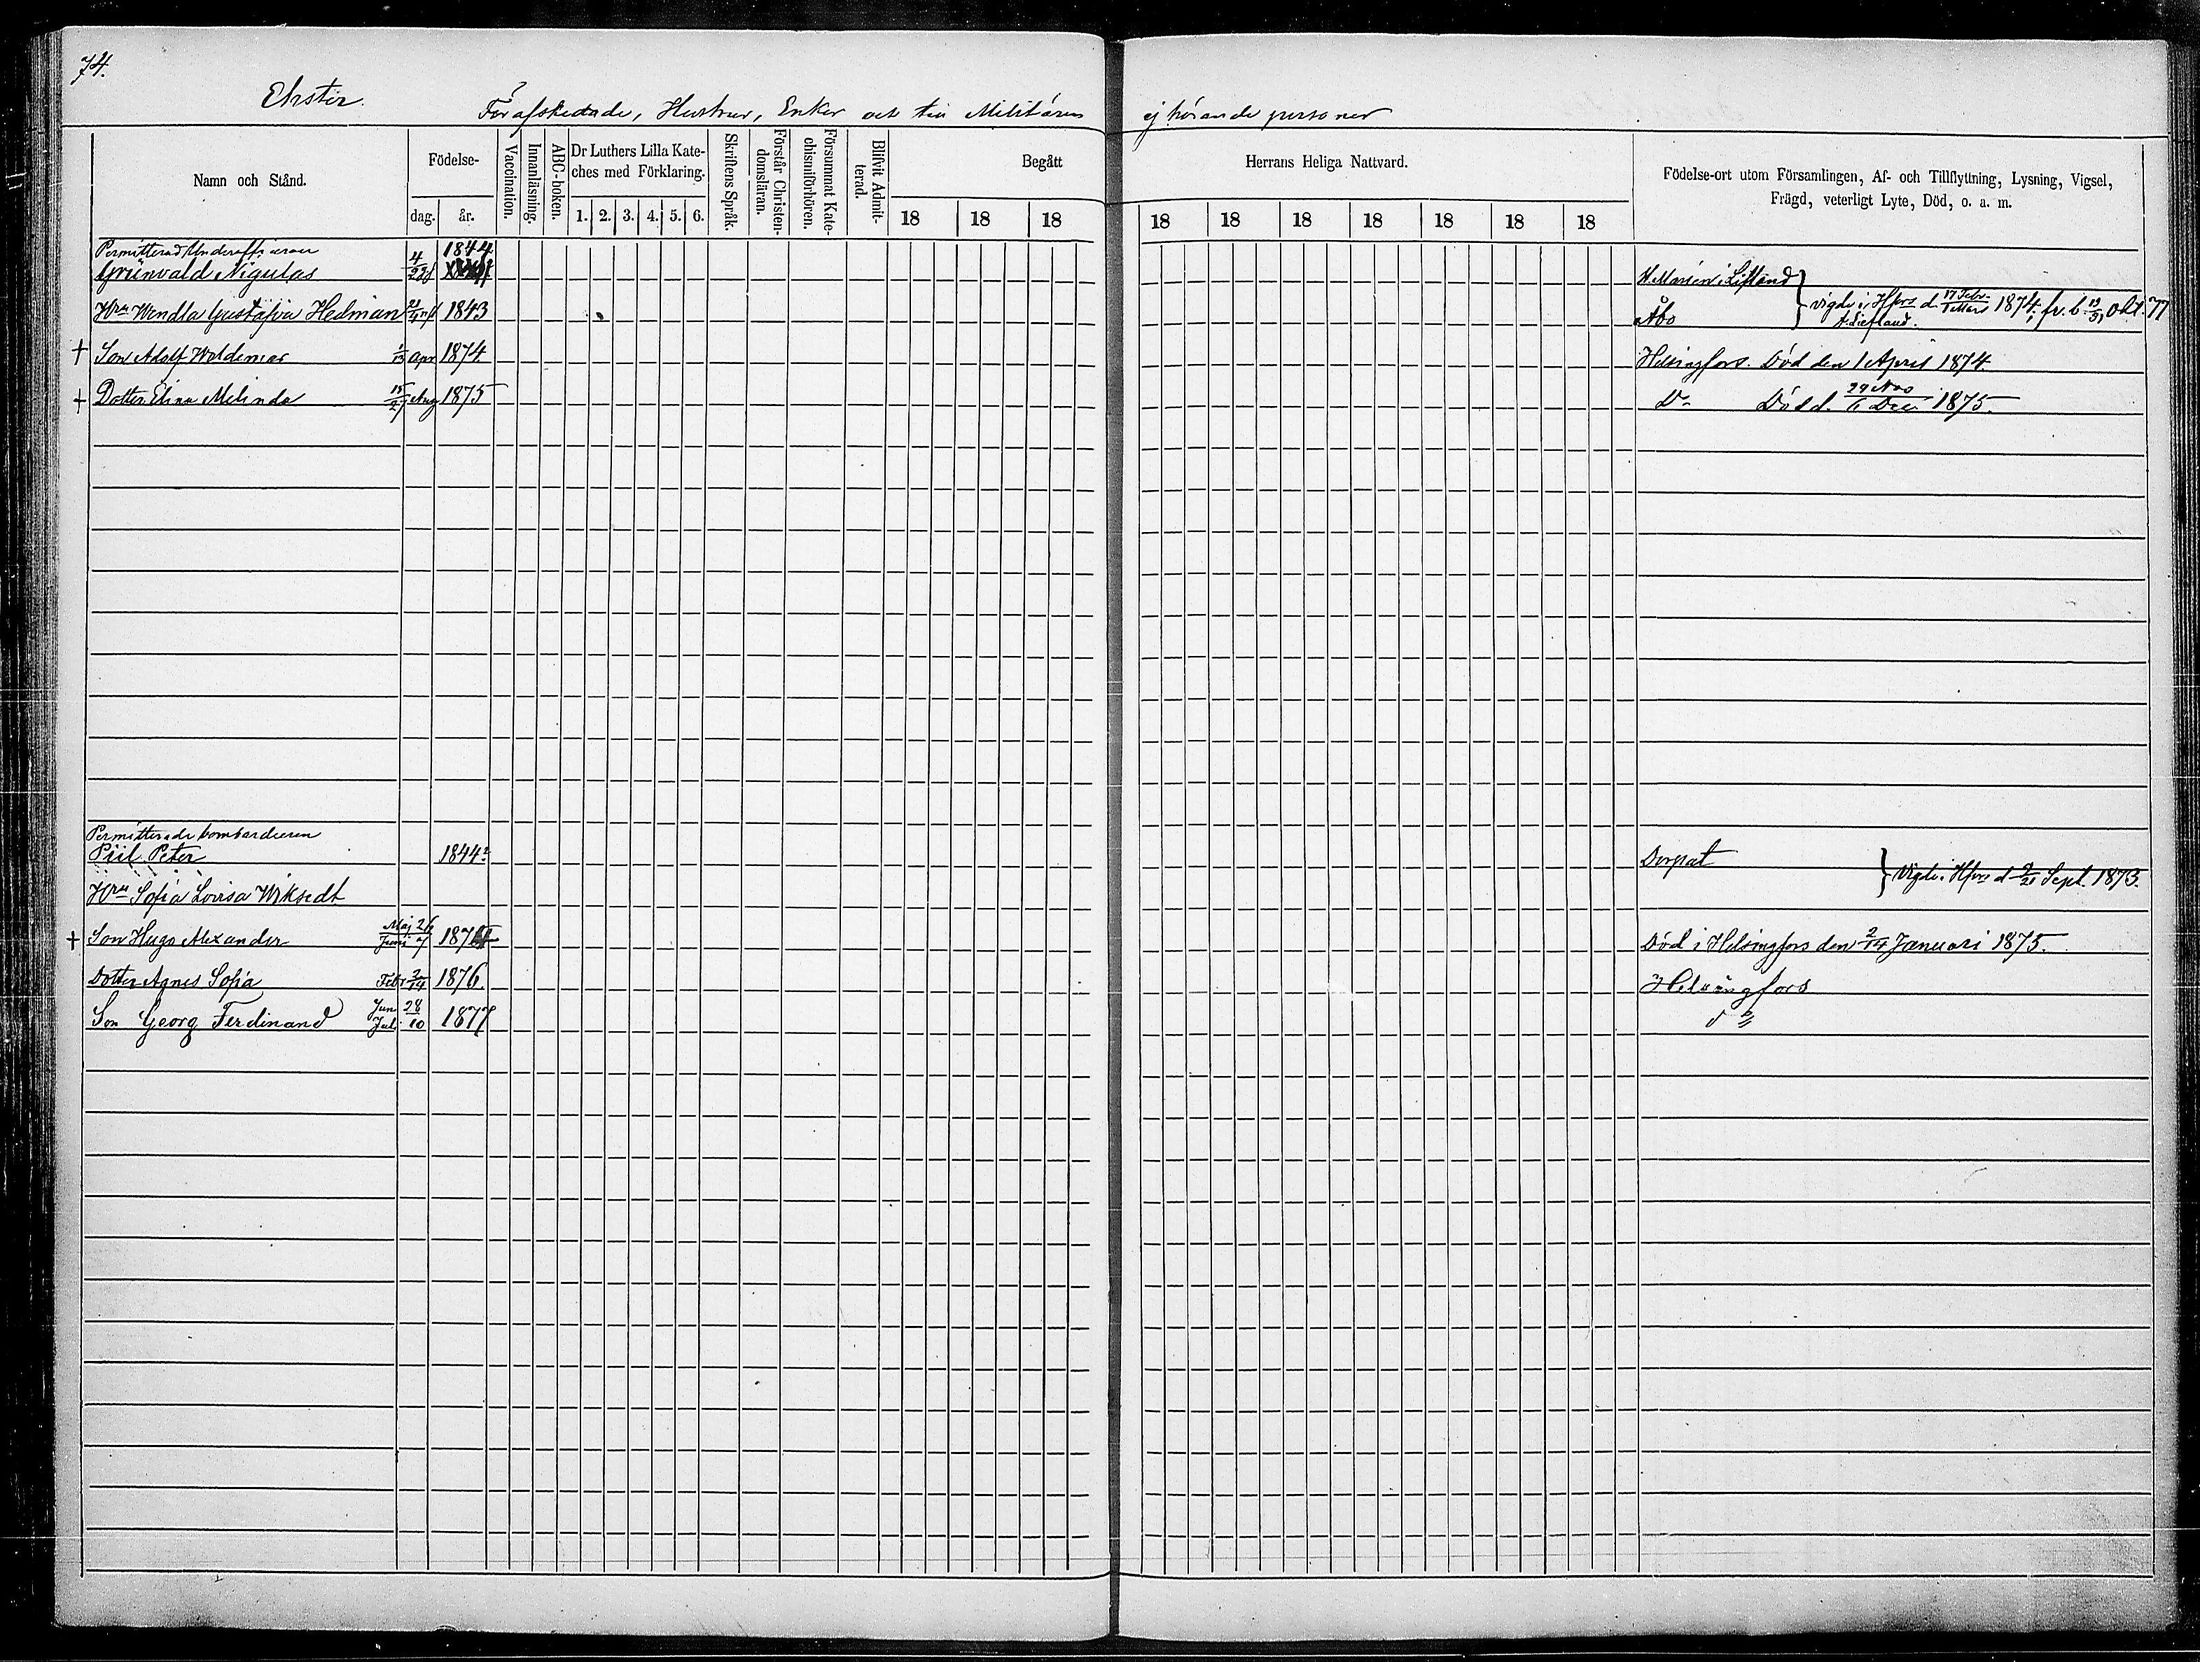 74.
Ehster
För afskedade, Hustrur, Enkor och till Militären ej hörande personer
Namn och Stånd.
Födelse-
dag.
år.
Vaccination.
Innanläsning.
ABC-boken.
Dr Luthers Lilla Kate-
ches med Förklaring.
1. 2. 3. 4. 5. 6.
Skriftens Språk.
Förstår Christen-
domsläran.
Försummat Kate-
chismiförhören.
Blifvit Admit-
terad.
Begått Herrans Heliga Nattvard.
18 18 18 18 18 18 18 18 18 18
Födelse-ort utom Församlingen, Af- och Tillflyttning, Lysning, Vigsel,
Frägd, veterligt Lyte, Död, o. a. m.
Permitterad Underofficeraren 1844.
Grünvald Nigulas 4/22 Lifland
Hru Wendla Gustafva Hedman 1843 Åbo } vigde i Hfors d 17 Febr./1 Mars 1874, fr. b. 19/31 Okt. 77
t. Liefland.
† Son Adolf Woldemar 1/13 Apr 1874 Helsingfors. Död den 1 April 1874
† Dotter Elina Melinda 15/27 Aug 1875 Do Död d. 29 Nov/11 Dec 1875.
Permitterade bombardieren
Piil Peter 1844? Dorpat } Vigde i Hfors d 9/21 Sept. 1873.
Hru Sofia Lovisa Wikstedt
† Son Hugo Alexander Maj 26/Juni 7 1874 Död i Helsingfors den 2/14 Januari 1875.
Dotter Agnes Sofia Febr 2/14 1876. Helsingfors
Son Georg Ferdinand Jun 28/Juli 10 1877 d "